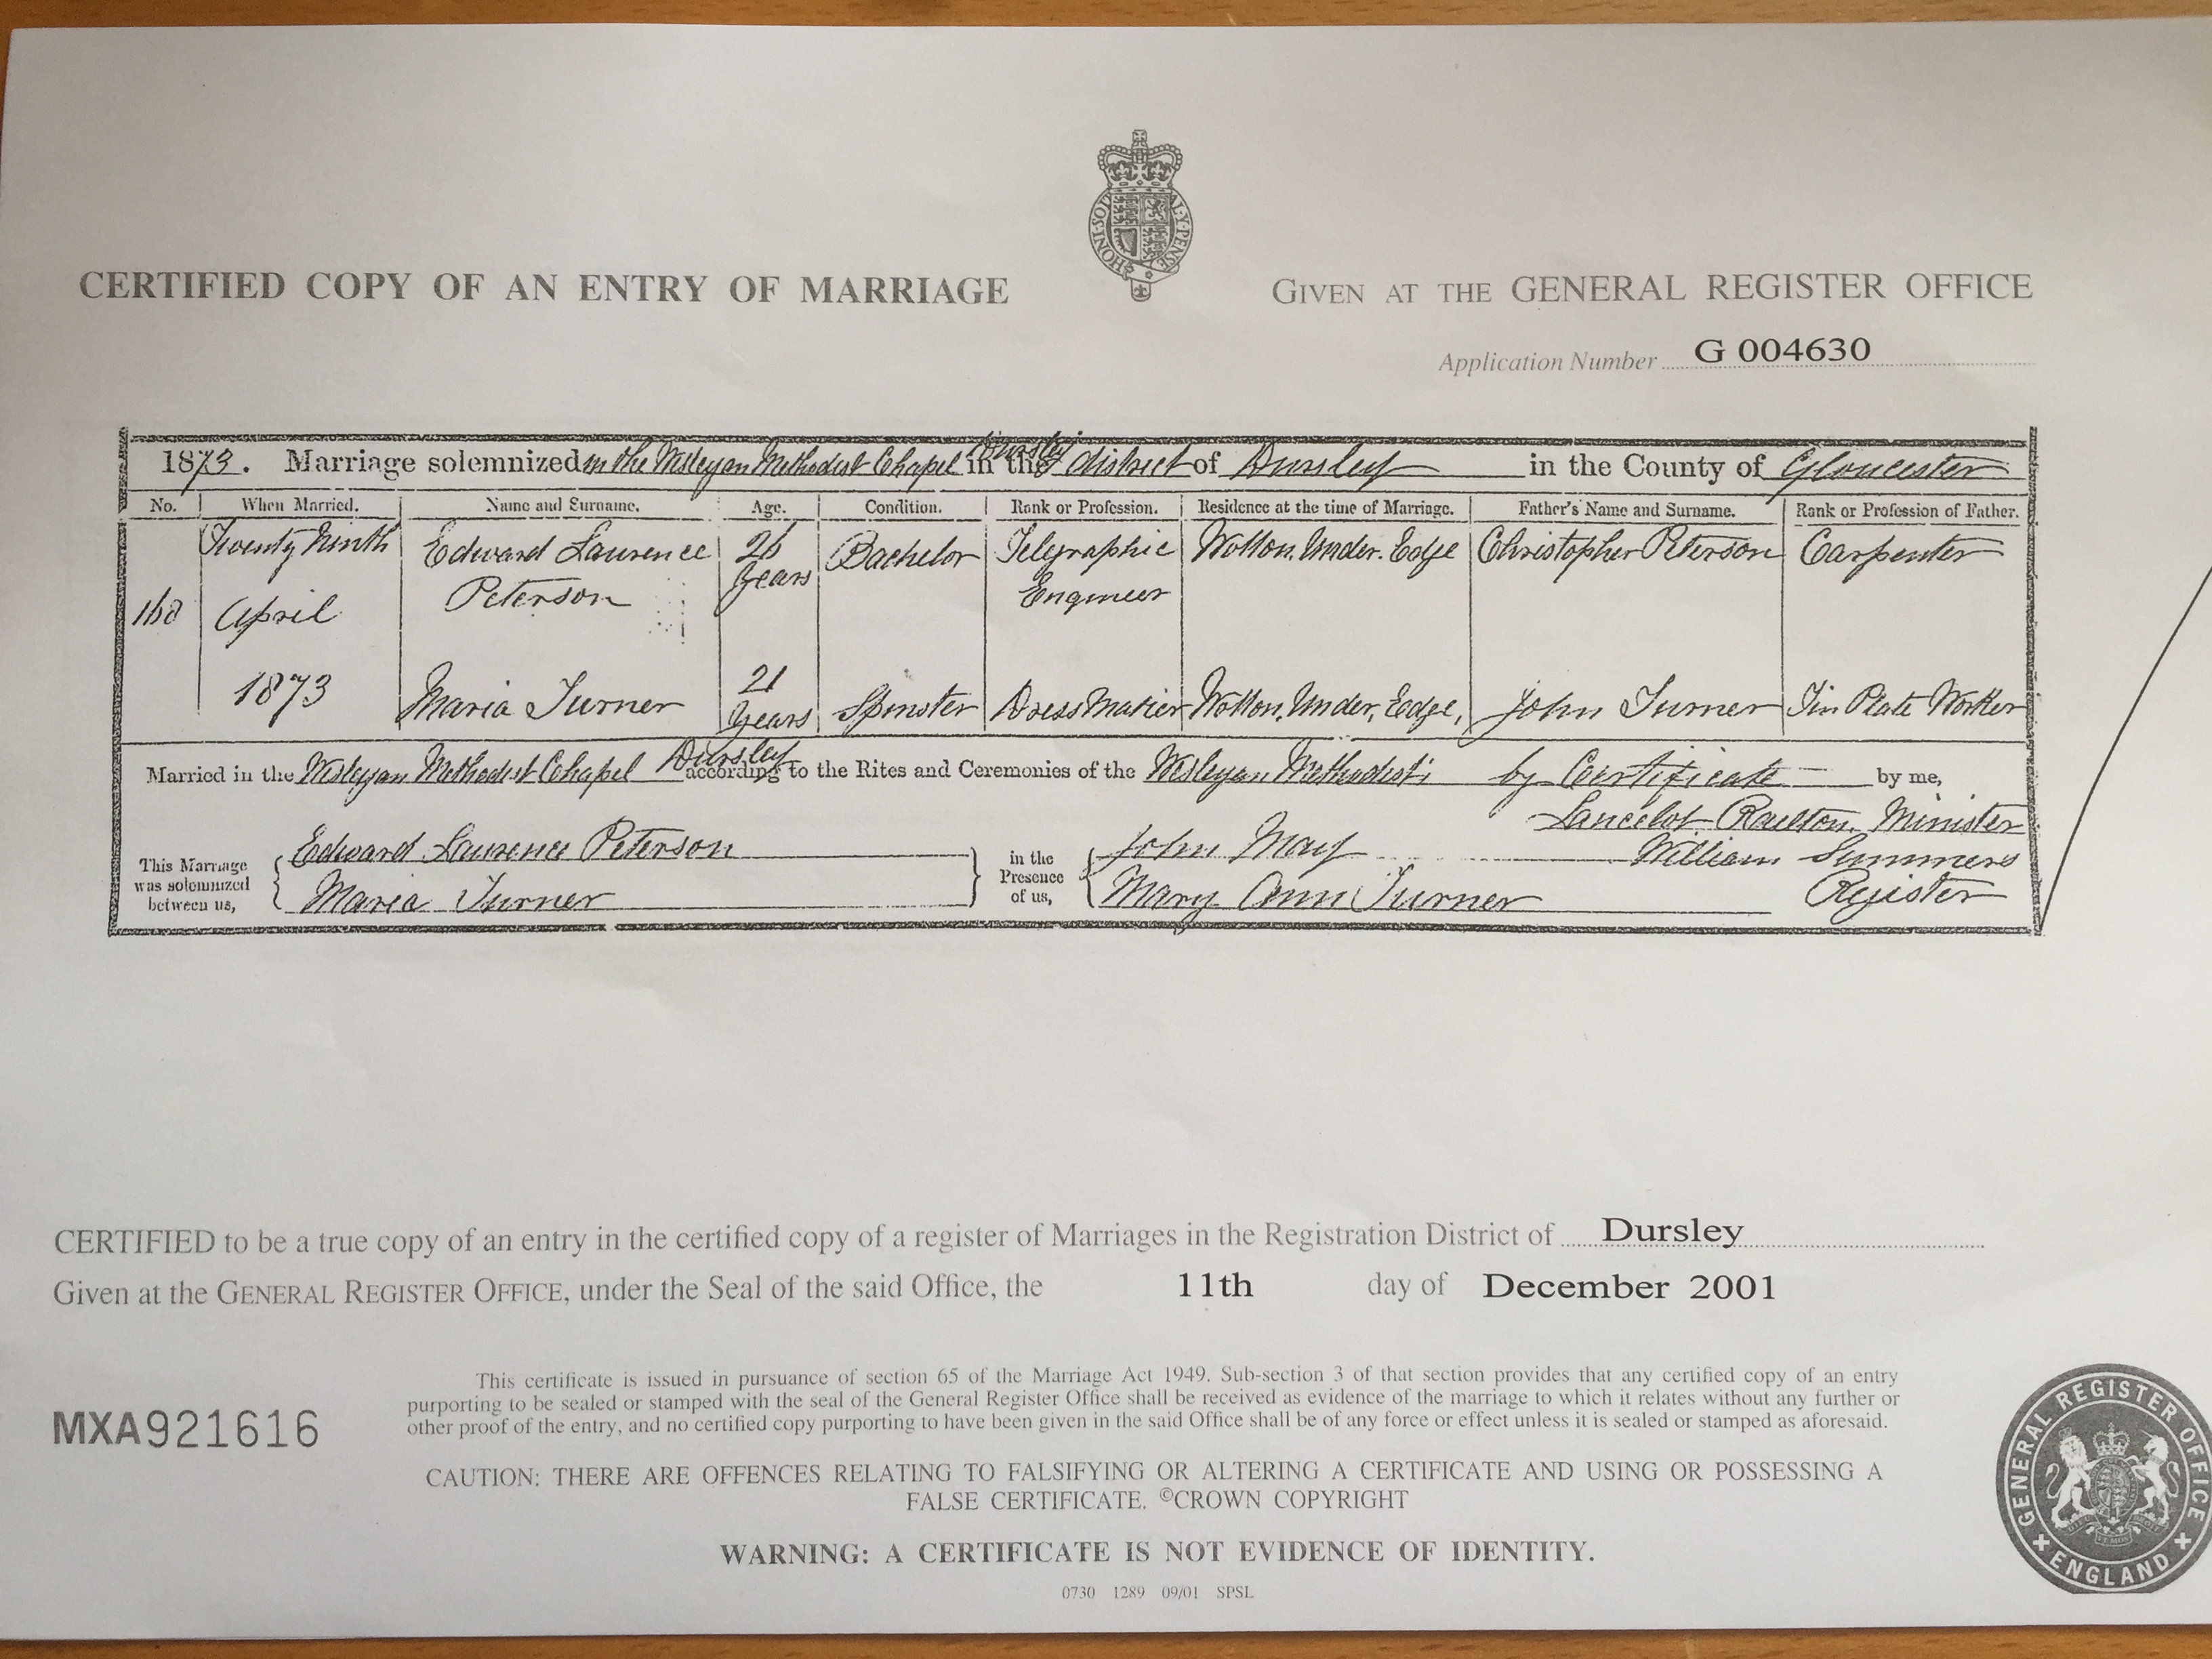 HONI·SOI AL·Y·PENSE
CERTIFIED COPY OF AN ENTRY OF MARRIAGE
GIVEN AT THE GENERAL REGISTER OFFICE
Application Number G 004630
Dursley
1873. Marriage solemnized in the Wesleyan Methodist Chapel in the district of Dursley in the County of Gloucester
No. When Married. Name and Surname. Age. Condition. Rank or Profession. Residence at the time of Marriage. Father's Name and Surname. Rank or Profession of Father.
Twenty Ninth Edward Laurence 26 Bachelor Telegraphic Wotton. Under. Edge Christopher Peterson Carpenter
years
Peterson Engineer
168 April
21
1873 Maria Turner years Spinster Dress Maker Wotton, Under, Edge, John Turner Tin Plate Worker
Dursley
Married in the Wesleyan Methodist Chapel according to the Rites and Ceremonies of the Wesleyan Methodists by Certificate by me,
Lancelot Railton Minister
Edward Laurence Peterson John May William Summers
This Marriage was solemnized between us, in the Presence of us,
Maria Turner Mary Ann Turner Register
CERTIFIED to be a true copy of an entry in the certified copy of a register of Marriages in the Registration District of Dursley
Given at the GENERAL REGISTER OFFICE, under the Seal of the said Office, the 11th day of December 2001
This certificate is issued in pursuance of section 65 of the Marriage Act 1949. Sub-section 3 of that section provides that any certified copy of an entry
purporting to be sealed or stamped with the seal of the General Register Office shall be received as evidence of the marriage to which it relates without any further or
other proof of the entry, and no certified copy purporting to have been given in the said Office shall be of any force or effect unless it is sealed or stamped as aforesaid.
MXA921616
CAUTION: THERE ARE OFFENCES RELATING TO FALSIFYING OR ALTERING A CERTIFICATE AND USING OR POSSESSING A
FALSE CERTIFICATE. ©CROWN COPYRIGHT
WARNING: A CERTIFICATE IS NOT EVIDENCE OF IDENTITY.
0730 1289 09/01 SPSL
GENERAL REGISTER OFFICE
ENGLAND